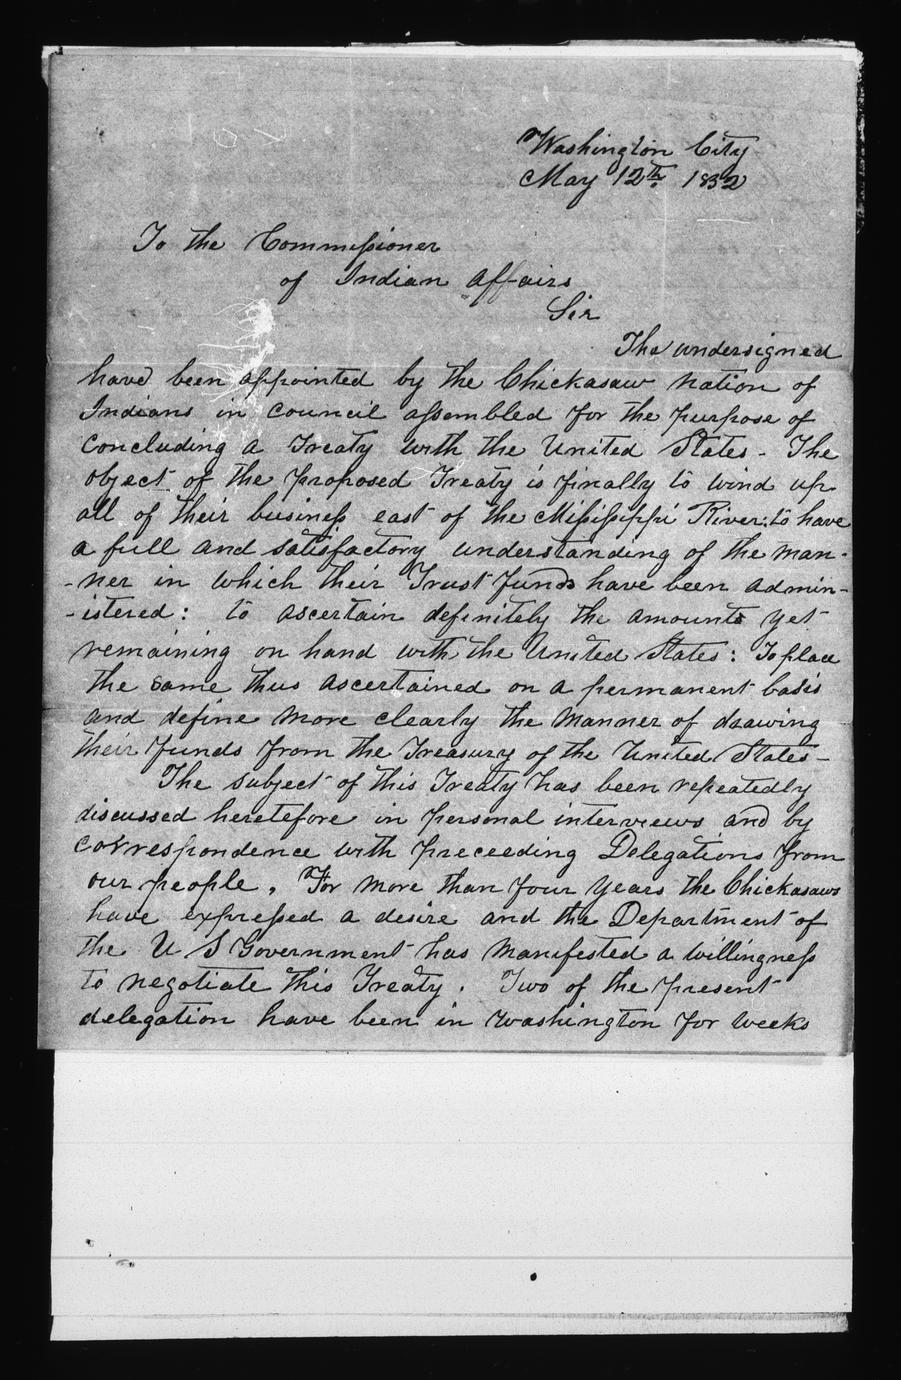 Washington City
May 12th. 1832
To the Commissioner
of Indian Affairs
Sir
The undersigned
have been appointed by the Chickasaw nation of
Indians in council assembled for the purpose of
concluding a Treaty with the United States - The
object of the proposed Treaty is finally to wind up
all of their business east of the Mississippi River; to have
a full and satisfactory understanding of the man-
-ner in which their Trust funds have been admin-
-istered: to ascertain definitely the amounts yet
remaining on hand with the United States: To place
the same thus ascertained on a permanent basis
and define more clearly the manner of drawing
their funds from the Treasury of the United States -
The subject of this Treaty has been repeatedly
discussed heretefore in personal interviews and by
correspondence with preceeding Delegations from
our people. For more than four years the Chickasaws
have expressed a desire and the Department of
the U S Government has manifested a willingness
to negotiate this Treaty. Two of the present
delegation have been in Washington for weeks